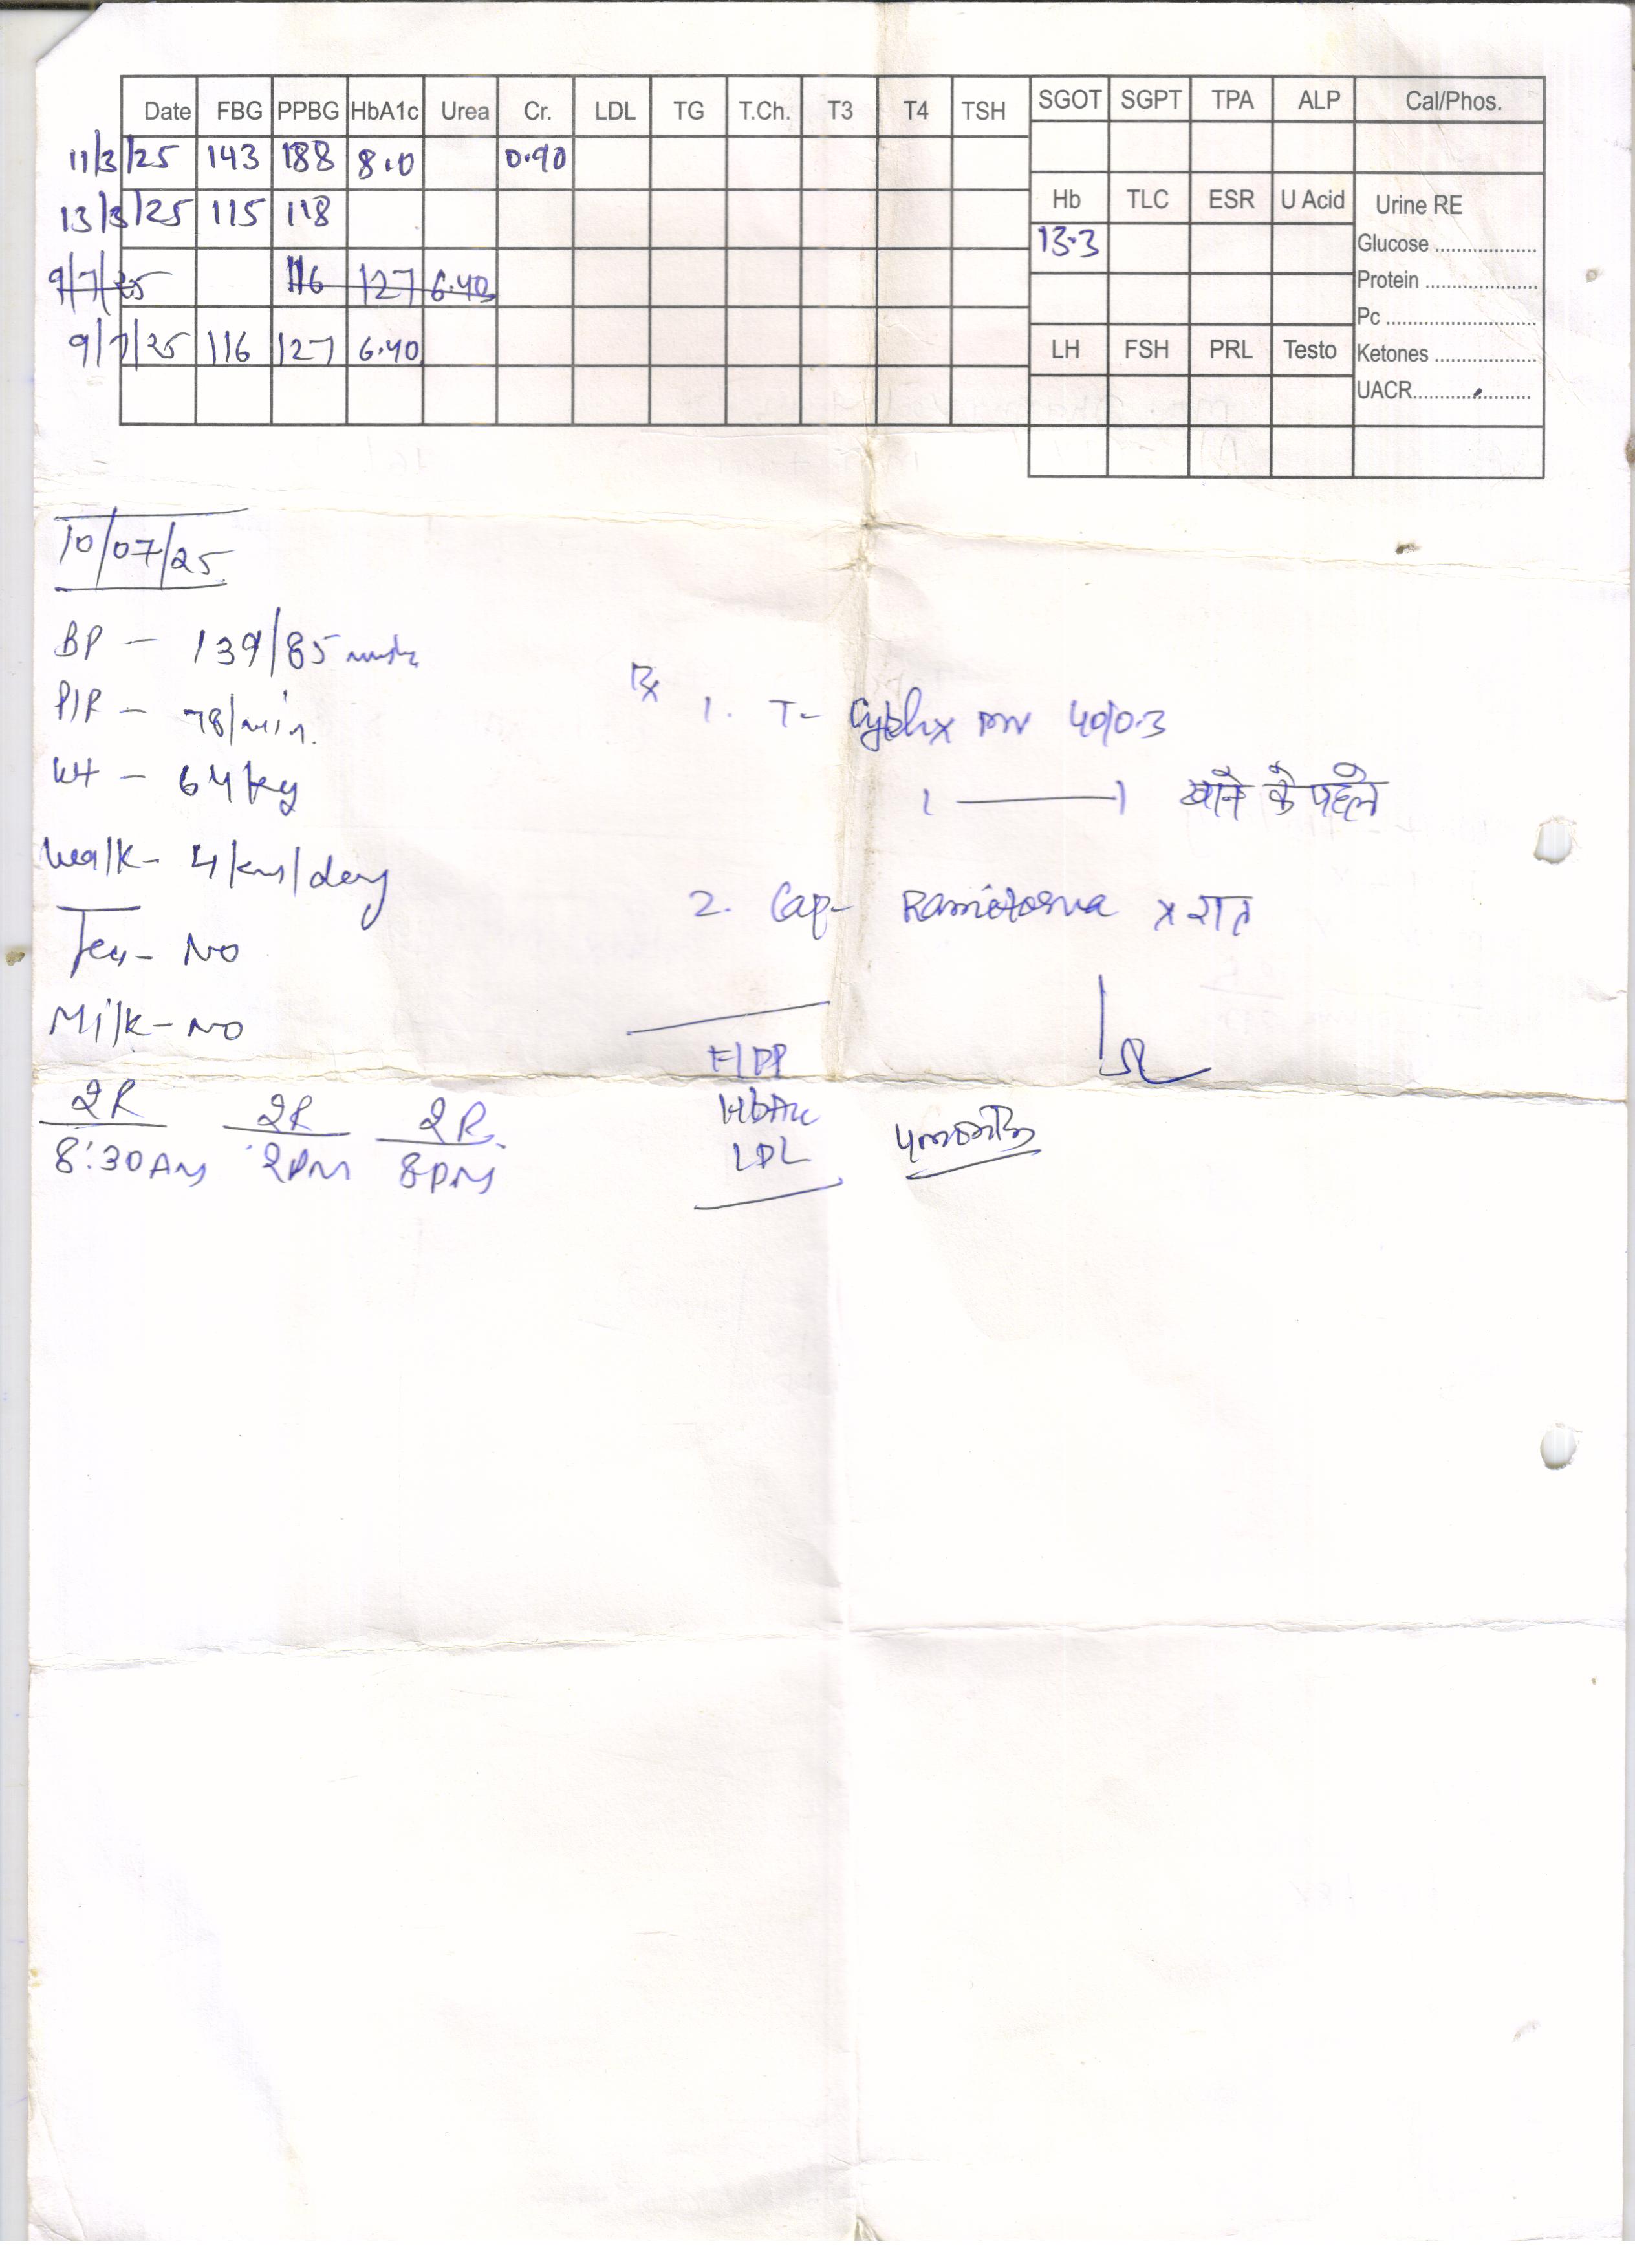 Date FBG PPBG HbA1c Urea Cr. LDL TG T.Ch. T3 T4 TSH
11/3/25 143 188 8.0 0.90
13/3/25 115 118
9/7/25 116 127 6.40
9/7/25 116 127 6.40
SGOT SGPT TPA ALP Cal/Phos.
Hb TLC ESR U Acid Urine RE
13.3 Glucose ....................
Protein ......................
Pc ..............................
LH FSH PRL Testo Ketones ....................
UACR.......................
10/07/25
BP - 139/85
P/R - 78/min.
Wt - 64 kg
Walk- 4 km/day
Tea- No
Milk- No
2R 2R 2R
8:30 AM 2PM 8PM
Rx
1. T- 40/0.3
1 — 1 खाने के पहले
2. Cap- x रात
F/PP
HbA1c
LDL